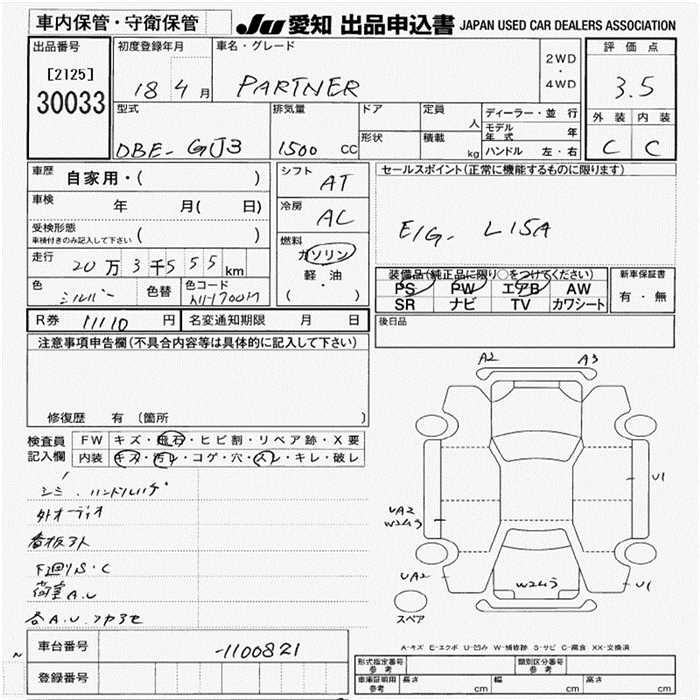 車内保管・守衛保管
JU 愛知 出品申込書 JAPAN USED CAR DEALERS ASSOCIATION
出品番号
[2125]
30033
初度登録年月
18 4 月
車名・グレード
PARTNER
2WD
・
4WD
評価点
3.5
外装 内装
C C
型式
DBE-GJ3
排気量
1500 CC
ドア
形状
定員
人
積載
kg
ディーラー・並行
モデル年式 年
ハンドル 左・右
車歴 自家用・( )
車検 年 月( 日)
受検形態
車検付きのみ記入して下さい ( )
走行 20万3千555km
色
シルバー
色替
色コード
NH700M
シフト
AT
冷房
AC
燃料
ガソリン
軽・油
( ・ )
セールスポイント(正常に機能するものに限ります)
E/G- L15A
装備品(純正品に限り○をつけてください)
PS PW エアB AW
SR ナビ TV カワシート
新車保証書
有・無
後日品
R券 11110 円
名変通知期限 月 日
注意事項申告欄(不具合内容等は具体的に記入して下さい)
修復歴 有 〔箇所 〕
検査員
記入欄
FW キズ・飛石・ヒビ割・リペア跡・X要
内装 キズ・汚レ・コゲ・穴・スレ・キレ・破レ
シミ、ハンドルハゲ
外オーディオ
看板跡
F廻りS・C
荷室A.U
各A.U.
A2
A3
U1
UA2
W2ムラ
UA2
W2ムラ
U1
スペア
A-キズ E-エクボ U-凹み W-補修跡 S-サビ C-腐食 XX-交換済
車台番号 -1100821
登録番号
形式指定番号
参考
類別区分番号
参考
車庫証明用
参考
長さ cm 幅 cm 高さ cm